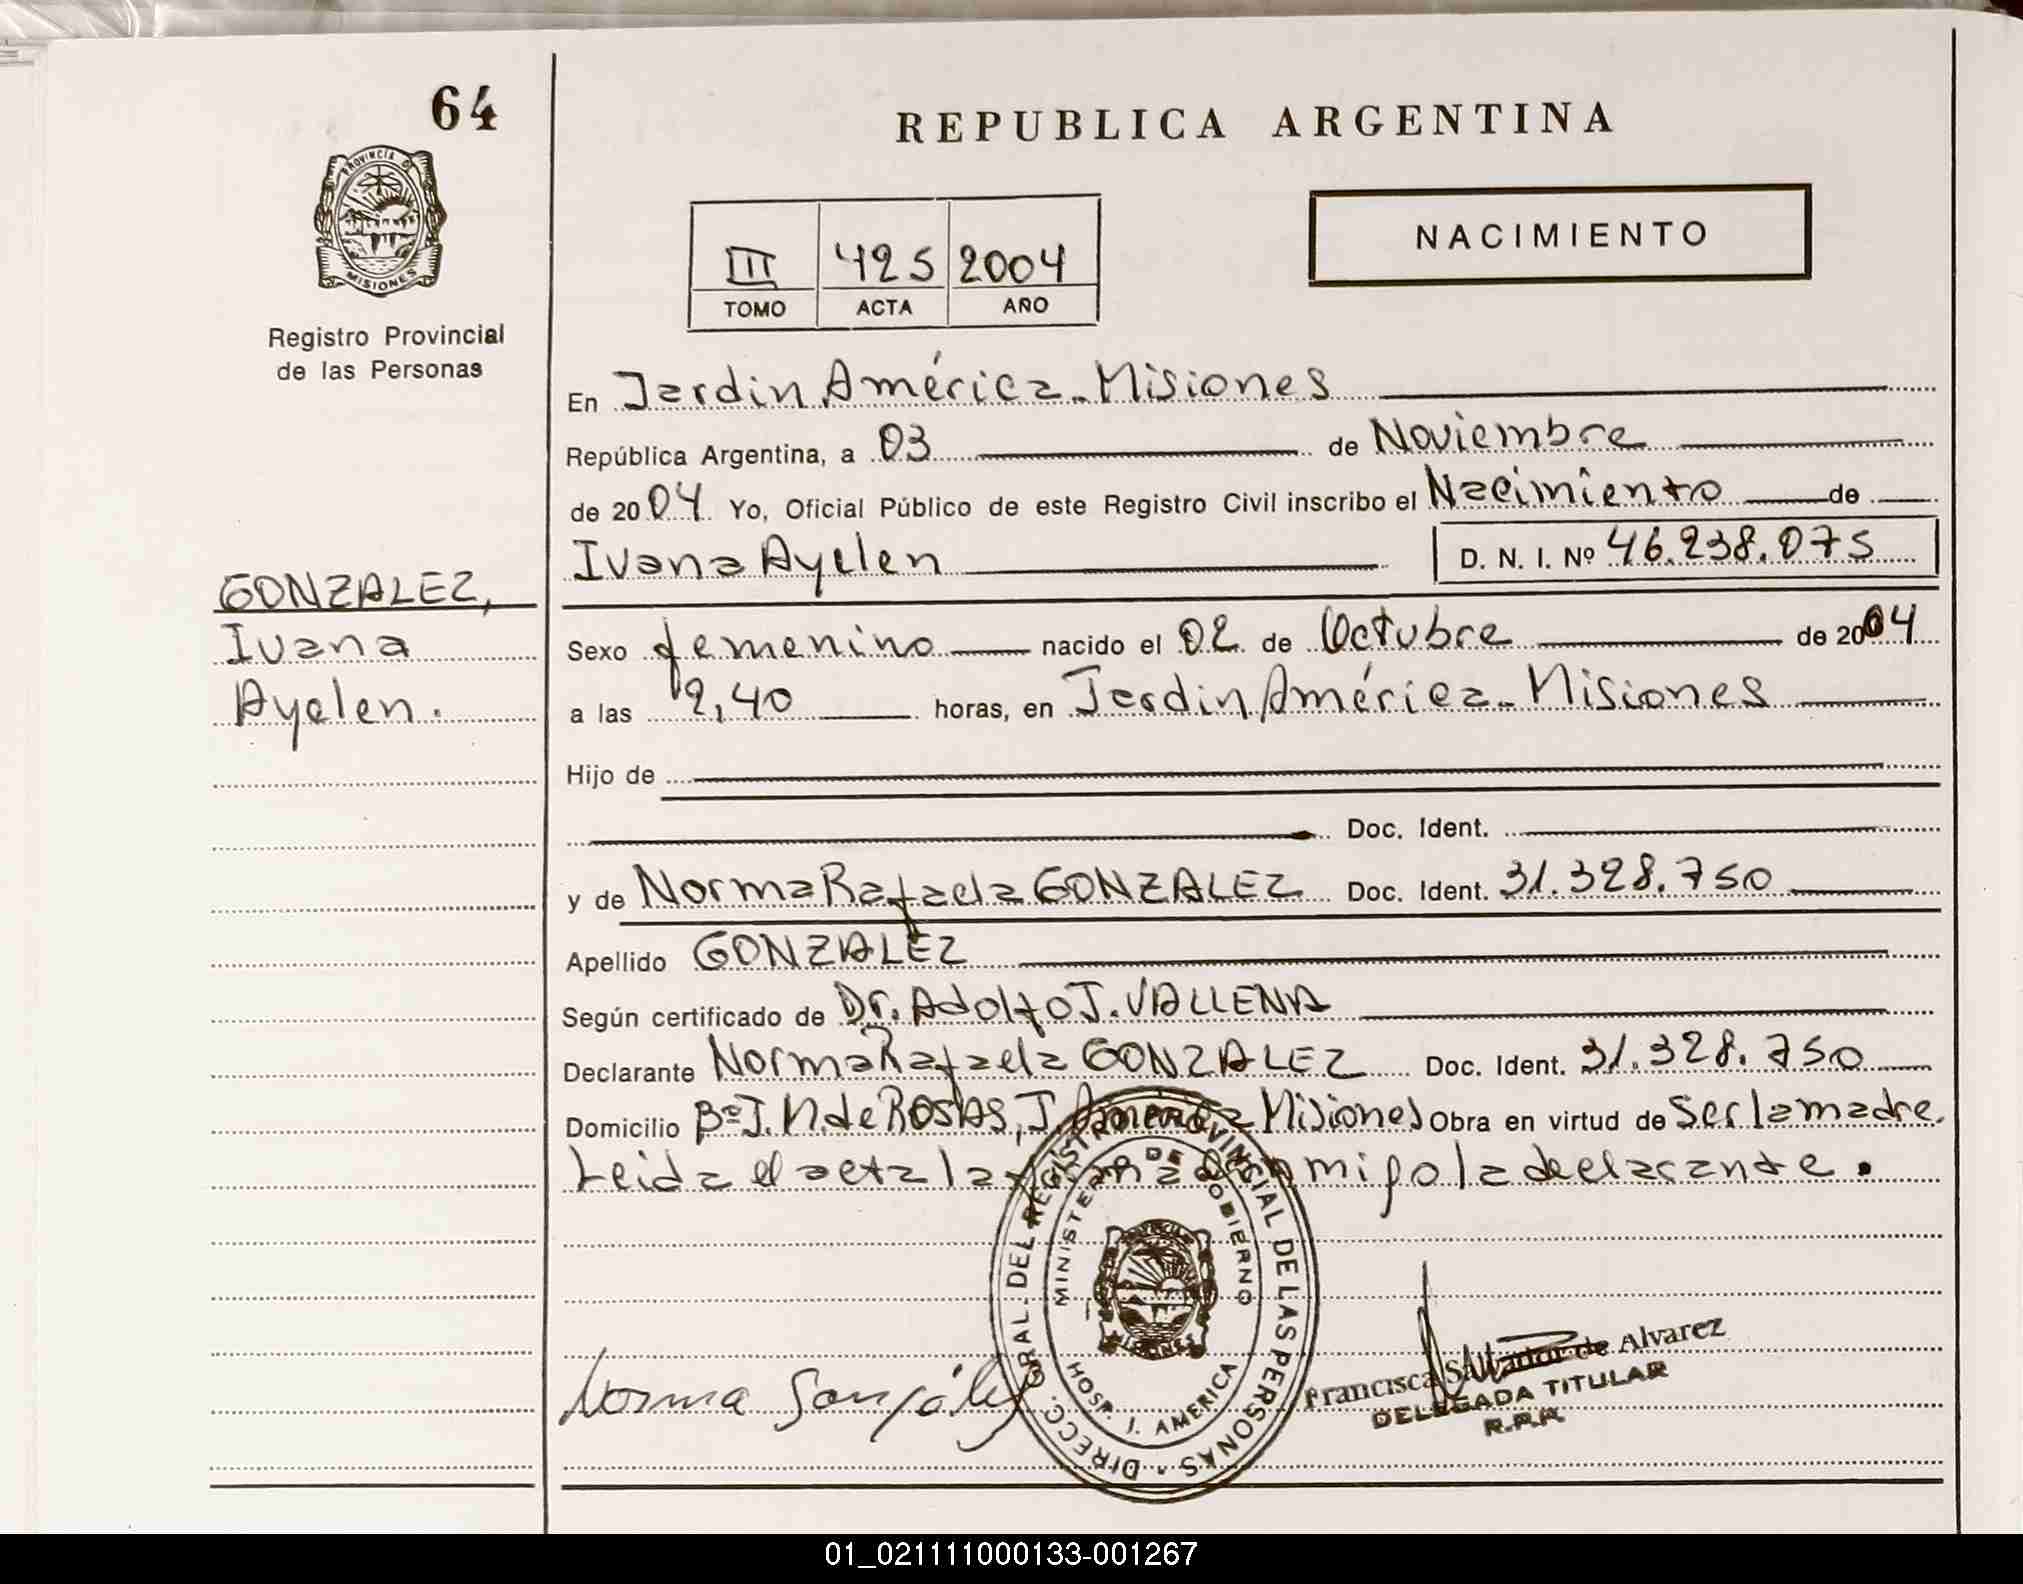 64
REPUBLICA ARGENTINA
PROVINCIA DE
MISIONES
NACIMIENTO
III 425 2004
TOMO ACTA AÑO
Registro Provincial
de las Personas
En Jardin América - Misiones
República Argentina, a 03 de Noviembre
de 2004 Yo, Oficial Público de este Registro Civil inscribo el Nacimiento de
Ivana Ayelen D. N. I. Nº 46.238.075
GONZALEZ,
Ivana
Ayelen.
Sexo femenino nacido el 02 de Octubre de 2004
a las 2,40 horas, en Jardin América - Misiones
Hijo de
Doc. Ident.
y de Norma Rafaela GONZALEZ Doc. Ident. 31.328.750
Apellido GONZALEZ
Según certificado de Dr. Adolfo J. VALLENA
Declarante Norma Rafaela GONZALEZ Doc. Ident. 31.328.750
Domicilio Bº J. M. de ROSAS, J. América Misiones Obra en virtud de Ser la madre.
Leida el acta la firma con migo la declarante.
DIRECC. GRAL. DEL REGISTRO PROVINCIAL DE LAS PERSONAS
MINISTERIO DE GOBIERNO
PROVINCIA
MISIONES
HOSP. J. AMERICA
Norma González
Francisca Salvador de Alvarez
DELEGADA TITULAR
R.P.P.
01_021111000133-001267